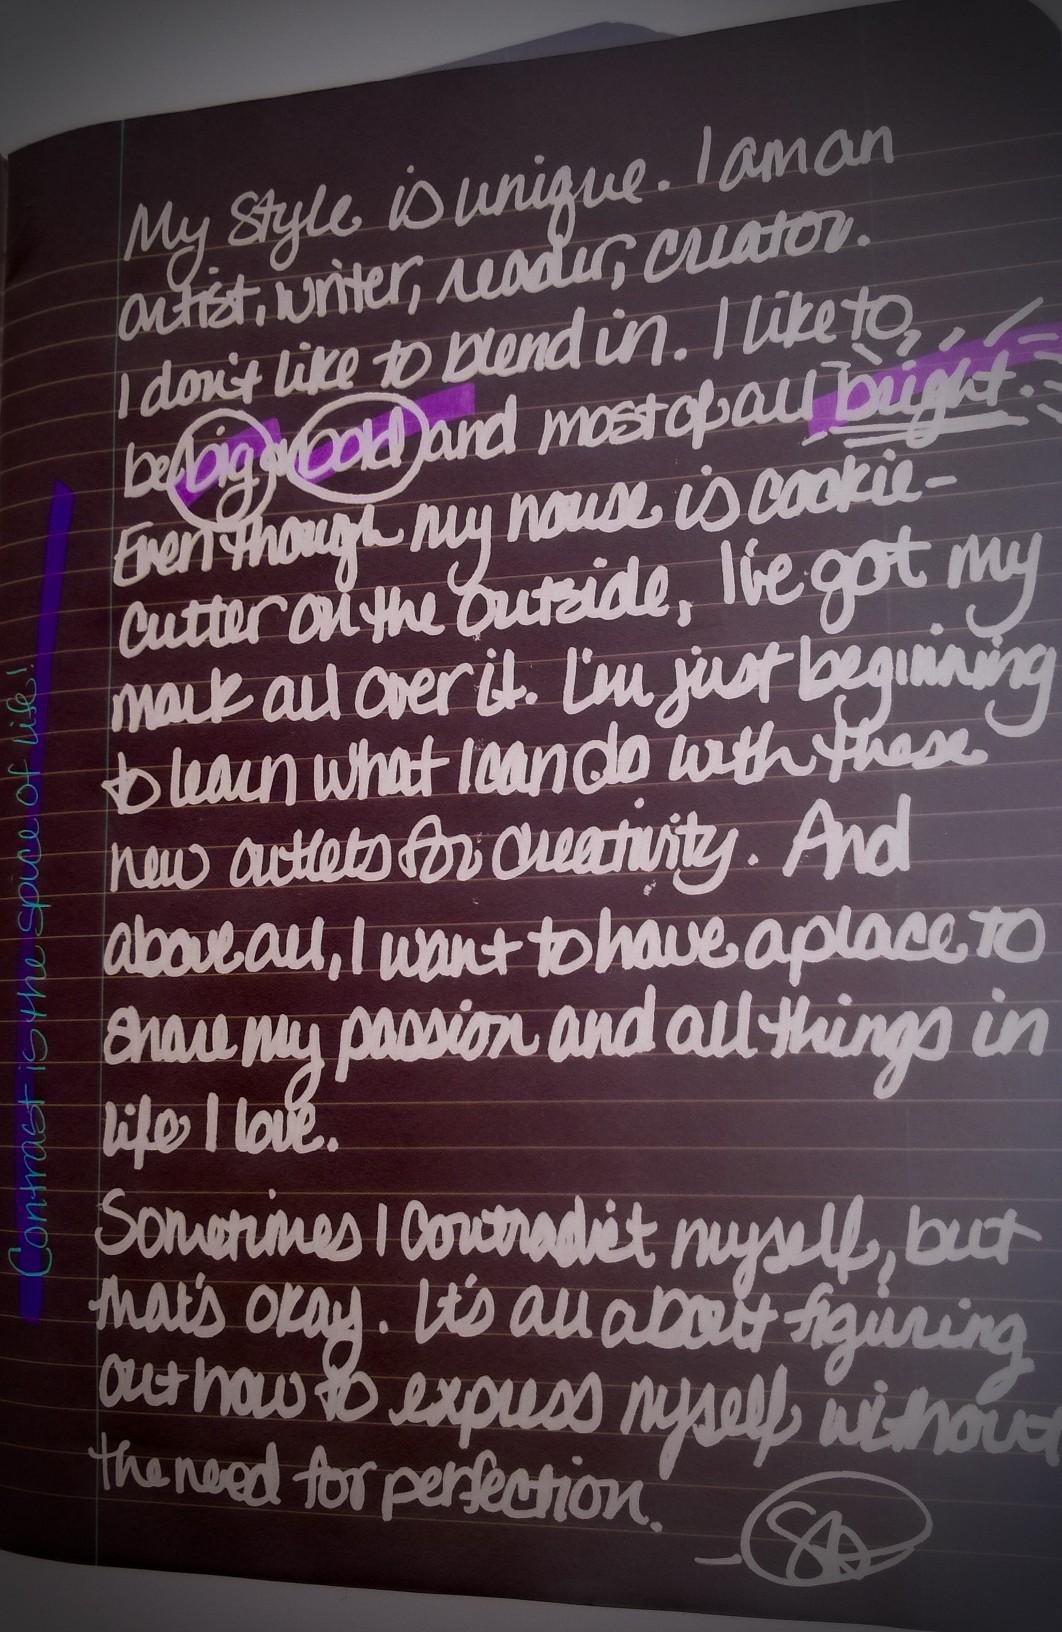 My Style is unique. I am an
artist, writer, reader, creator.
I don't like to blend in. I like to
be big & bold and most of all bright.
Even though my house is cookie-
cutter on the outside, I've got my
mark all over it. I'm just beginning
to learn what I can do with these
new outlets for creativity. And
above all, I want to have a place to
share my passion and all things in
life I love.
Sometimes I contradict myself, but
that's okay. It's all about figuring
out how to express myself without
the need for perfection.
Contrast is the spice of life!